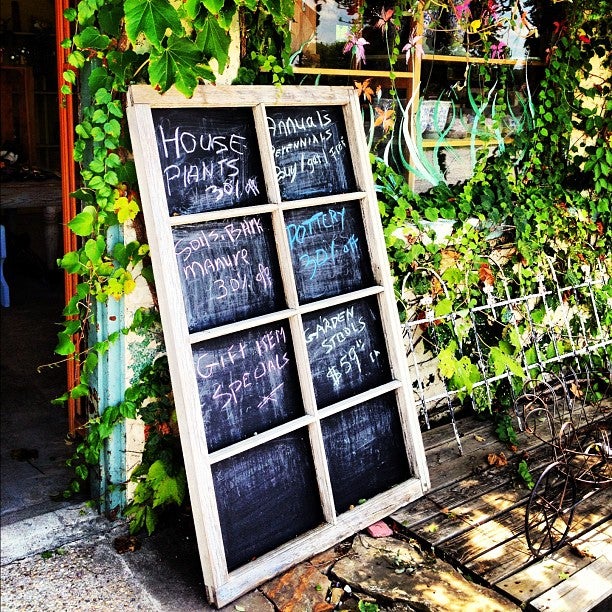 HOUSE
PLANTS
30% off
Annuals
Perennials
Buy 1 get 1 free
Soils, Bark
manure
30% off
POTTERY
30% off
GIFT ITEM
SPECIALS
GARDEN
STOOLS
$59